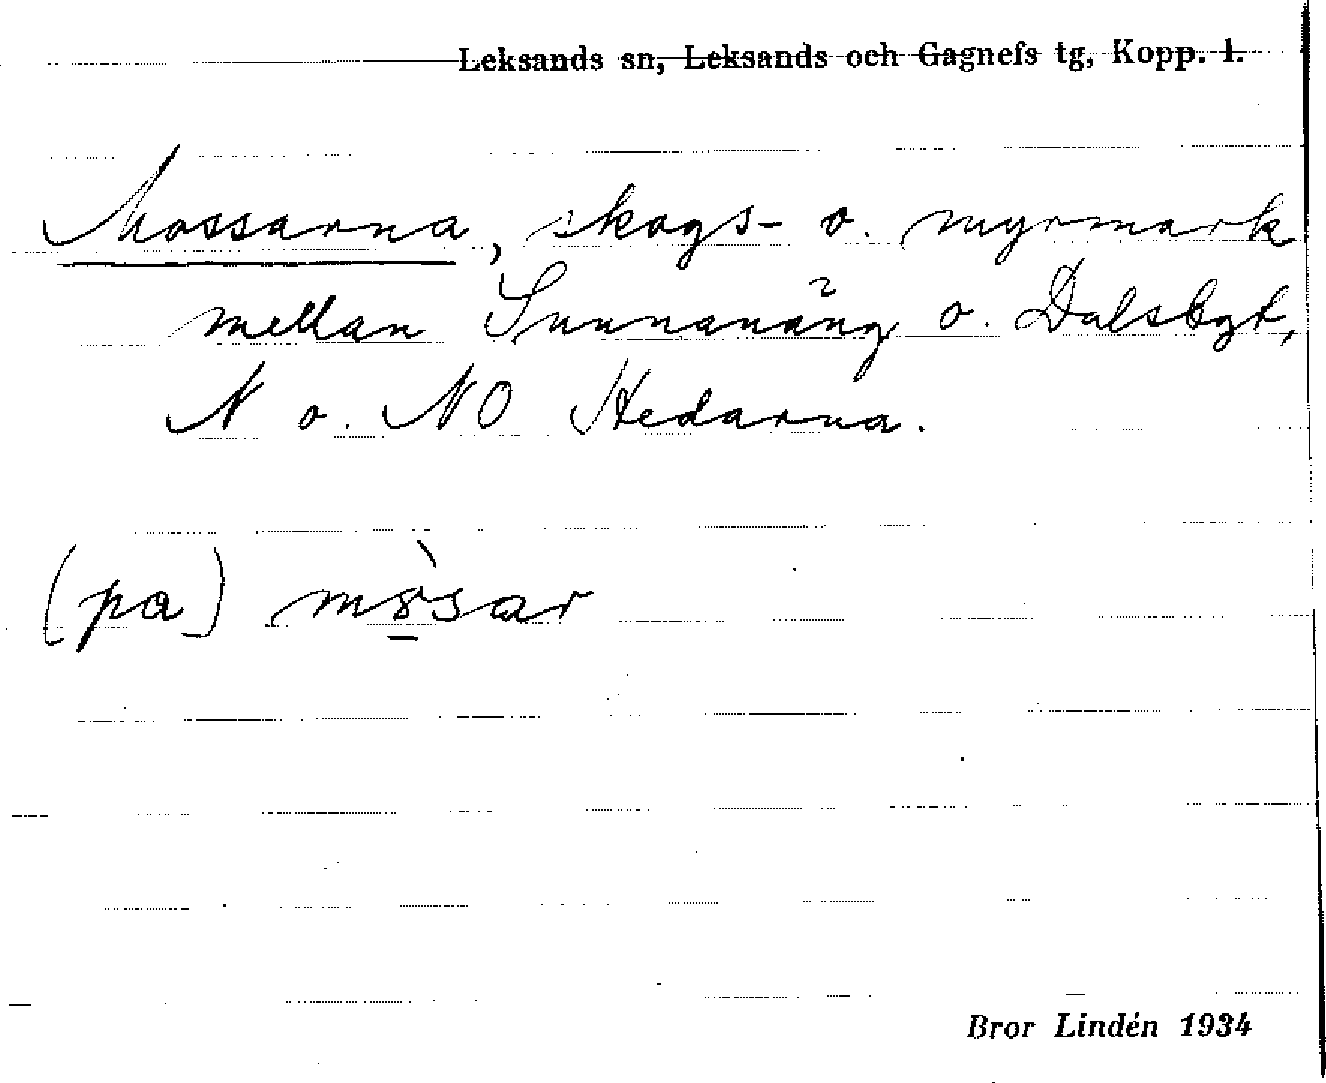 Leksands sn, Leksands och Gagnefs tg, Kopp. l.
Mossarna, skogs- o. myrmark
mellan Sunnanäng o. Dalsbyt,
N o. NO Hedarna.
(pa)
Bror Lindén 1934